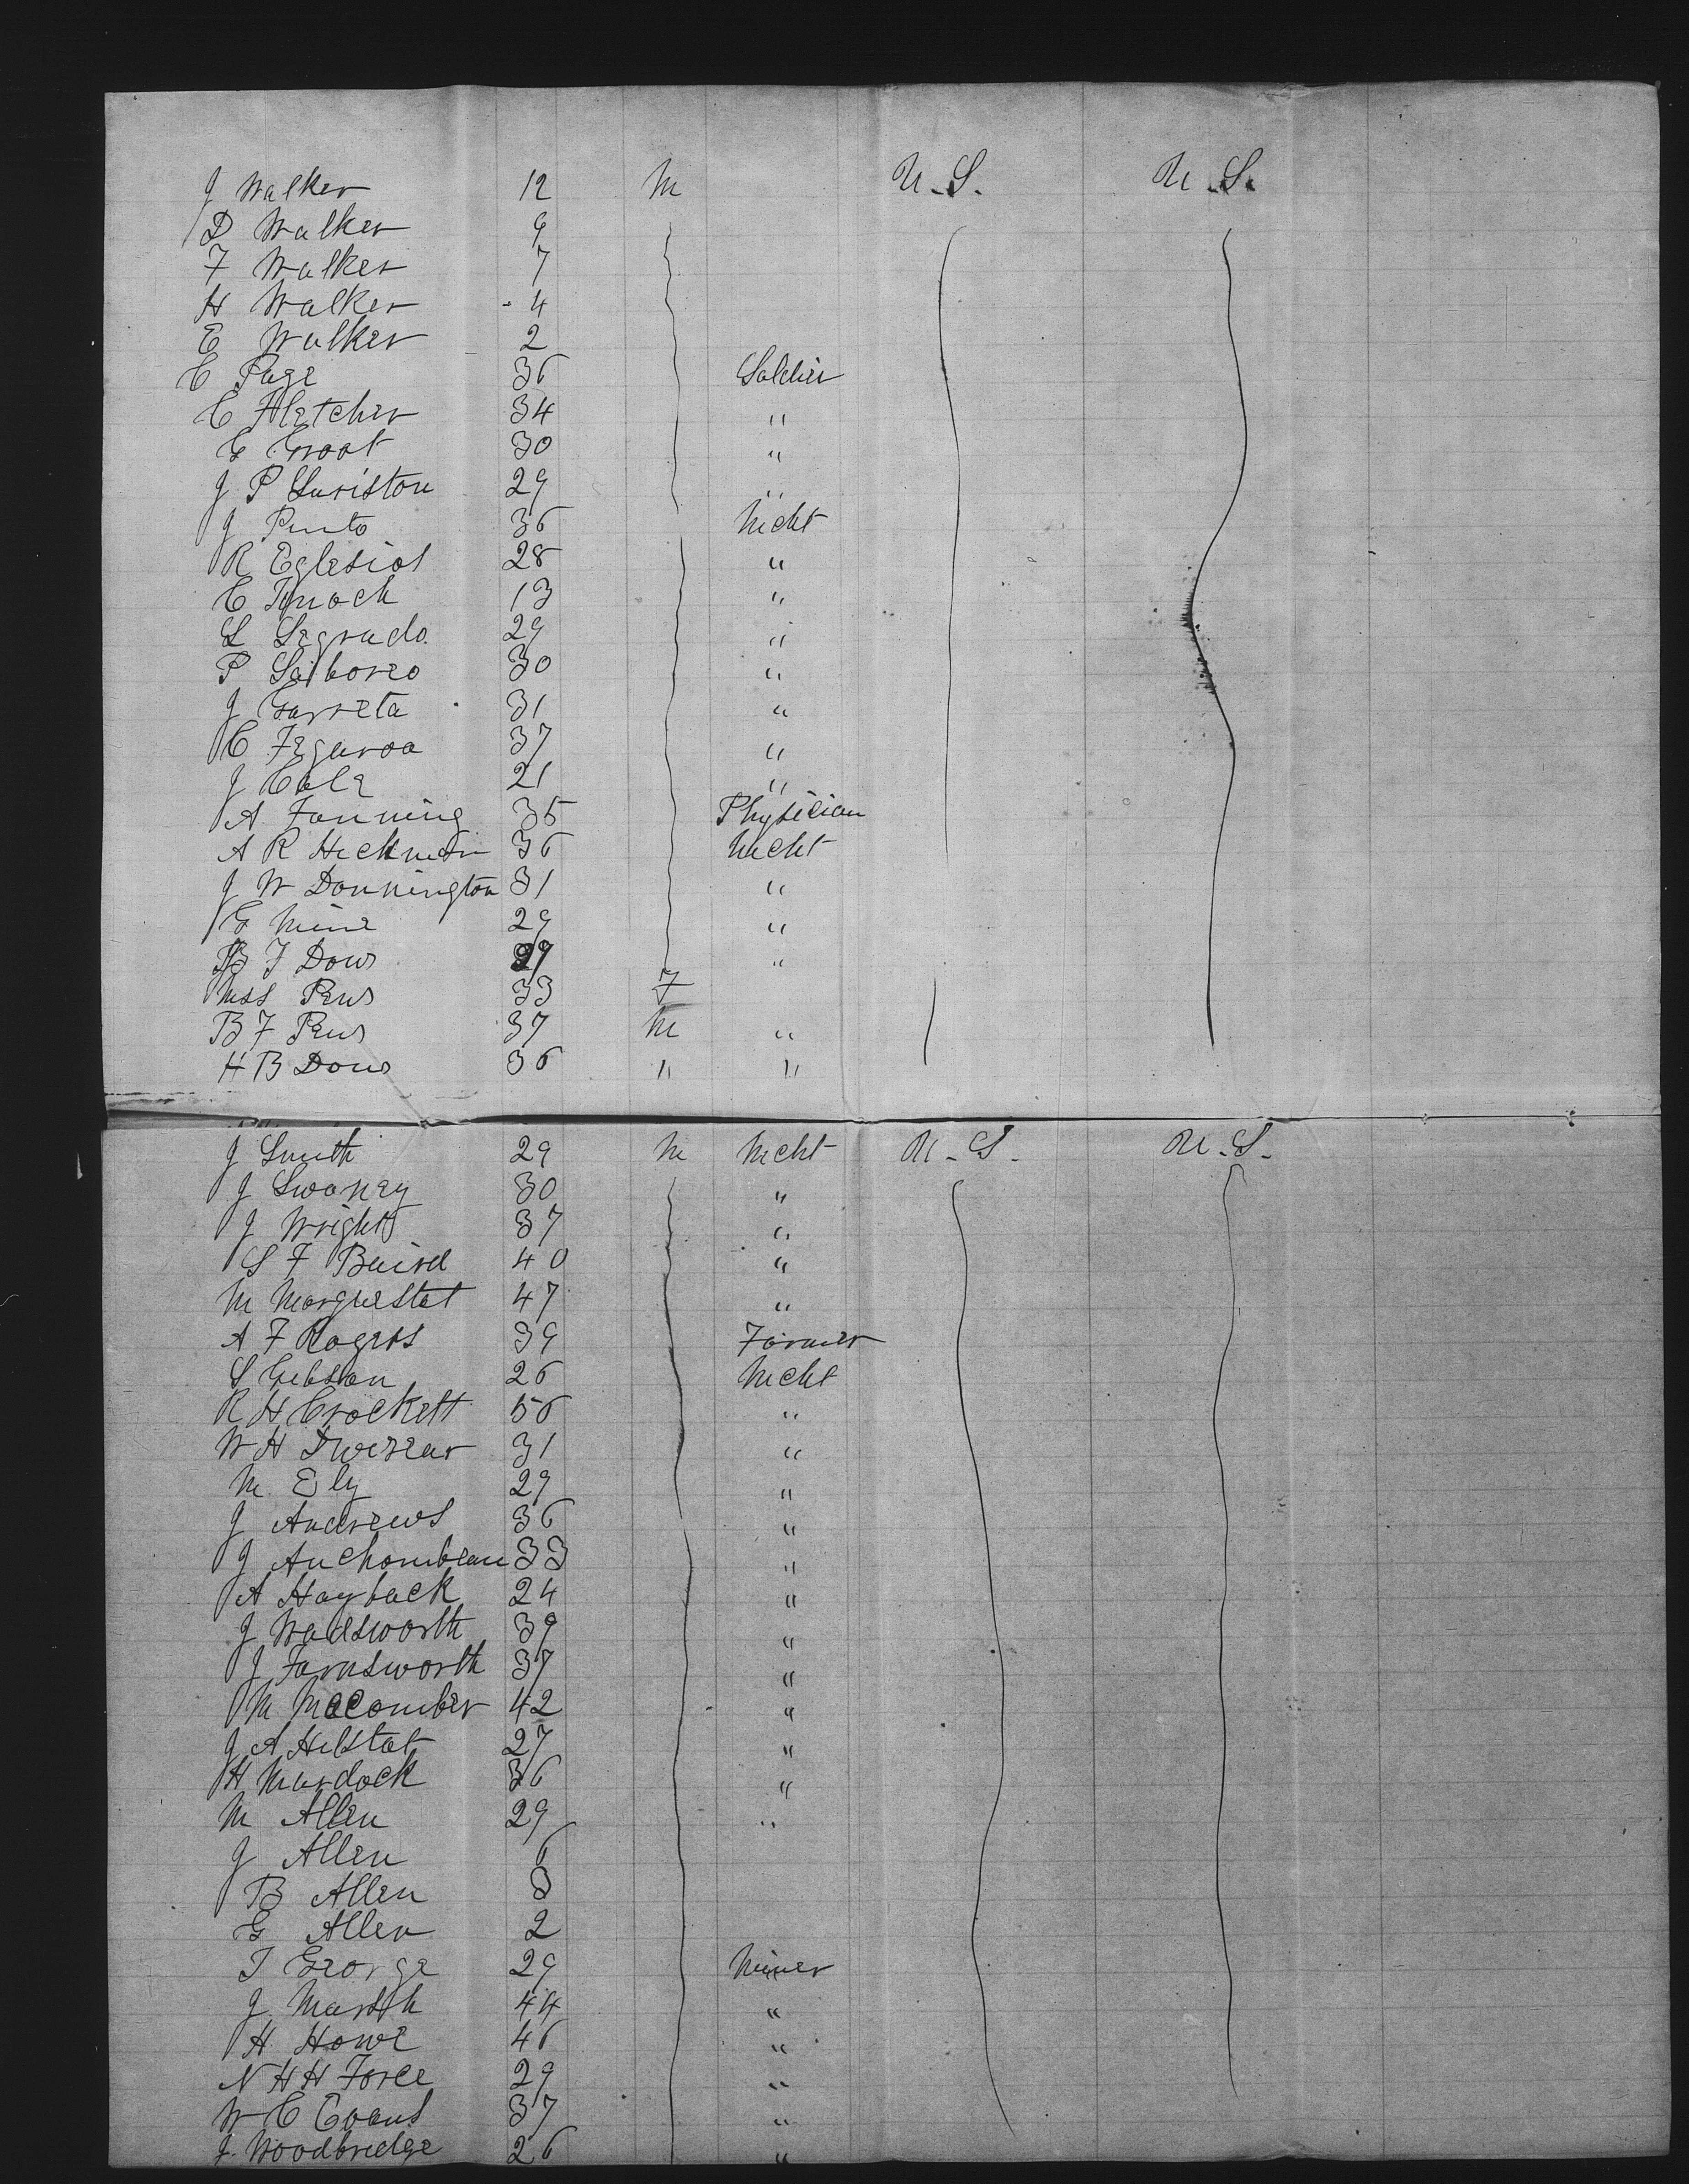 J Walker 12 M U.S. U.S.
D Walker 9
F Walker 7
H Walker 4
E Walker 2
C Page 36 Soldier
C Fletcher 34 "
G Groot 30 "
J P Luriston 29 "
J Pinto 36 Mcht
R Eglesios 28 "
C 13 "
L Legrado 29 "
P 30 "
J Garreta 31 "
C Fegaroa 37 "
J Cole 21 "
A Fanning 35 Physician
A R 36 Mcht
J W Donnington 31 "
G Mine 29 "
B F Dows "
Mss Pews 33 F
B F Pews 37 M "
H B Dows 36 " "
J Smith 29 M Mcht U.S. U.S.
J Swaney 30 "
J Wright 37 "
S F Baird 40 "
M 47 "
A F Rogers 39 Farmer
S Gibson 26 Mcht
R H Crockett 56 "
W H 31 "
M. Ely 29 "
J Andrews 36 "
J Auchombeau 33 "
A Hayback 24 "
J Wadsworth 39 "
J Farnsworth 37 "
M Macomber 42 "
J A Hilstat 27 "
H Murdock 36 "
M Allen 29 "
J Allen 6
B Allen 3
G Allen 2
T George 29 Miner
J. 44 "
H Howe 46 "
N H H Force 29 "
W C Evans 37 "
J. Woodbridge 26 "